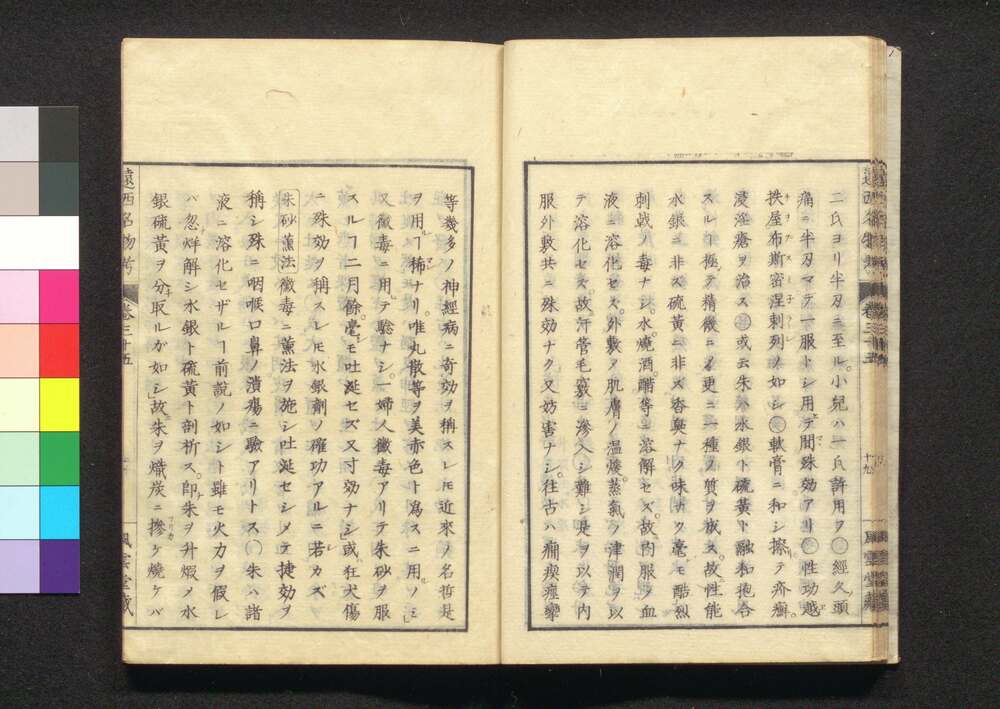 二氏ヨリ半刃ニ至ル。小兒ハ一氏許用フ○經久頭
痛ニ半刃マデ一服トシ用テ間殊効アリ○性功越
幾屋布斯密涅剌列ノ如シ○軟膏ニ和シ擦テ疥癬。
浸淫瘡ヲ治ス○或云朱ハ水銀ト硫黃ト融和抱合
スルヿ極テ精微ニシ更ニ一種ノ質ヲ成ス。故性能
水銀ニ非ズ硫黃ニ非ズ香臭ナク味ナク毫モ酷烈
刺戟ノ毒ナシ。水。燒酒。醋等ニ溶解セズ。故内服シ血
液ニ溶化セズ。外敷メ肌膚ノ溫煖。蒸氣ノ津潤ヲ以
テ溶化セズ。故汗管毛竅ニ滲入シ難シ是ヲ以テ内
服外敷共ニ殊効ナク又妨害ナシ。往古ハ癇。瘈。痙攣
等幾多ノ神經病ニ奇効ヲ稱スレモ近來ノ名哲是
ヲ用ルヿ稀ナリ。唯丸散等ヲ美赤色ト爲スニ用ルノミ
又黴毒ニ用テ驗ナシ。一婦人黴毒アリテ朱砂ヲ服
スルヿ二月餘。毫モ吐涎セズ又寸効ナシ或狂犬傷
ニ殊効ヲ稱スレモ水銀劑ノ確功アルニ若カズ
朱砂薰法 黴毒ニ薰法ヲ施シ吐涎セシメテ捷効ヲ
稱シ殊ニ咽喉口鼻ノ潰瘍ニ驗アリトス○朱ハ諸
液ニ溶化セザルヿ前說ノ如シト雖モ火力ヲ假レ
バ忽烊解シ水銀ト硫黃ト剖析ス。卽朱ヲ升煆メ水
銀硫黃ヲ分取ルが如シ故朱ヲ熾炭ニ摻ケ燒ケバ
遠西名物考 卷三十五
風雲堂藏
十九